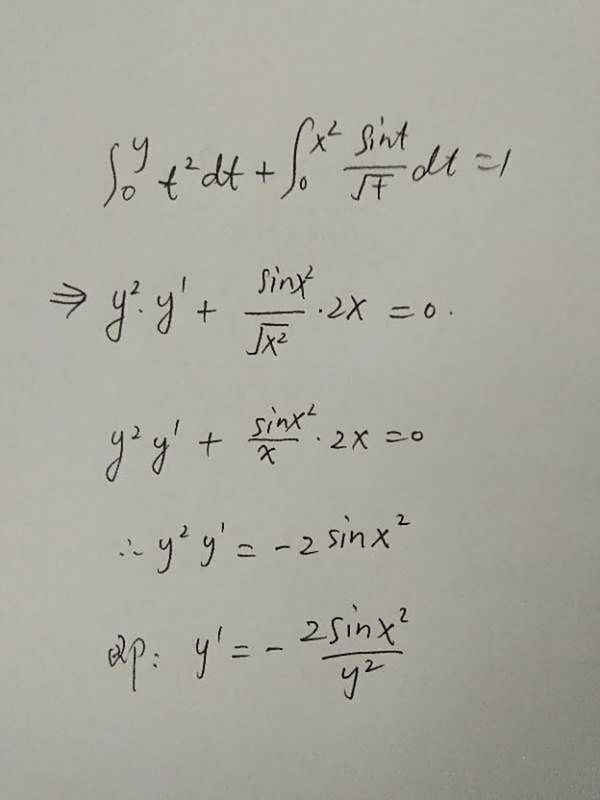 ∫₀^y t² dt + ∫₀^{x²} sint/√t dt = 1
⇒ y²·y' + sinx²/√x² · 2x = 0.
y² y' + sinx²/x · 2x = 0
∴ y² y' = -2 sinx²
即: y' = - 2sinx²/y²